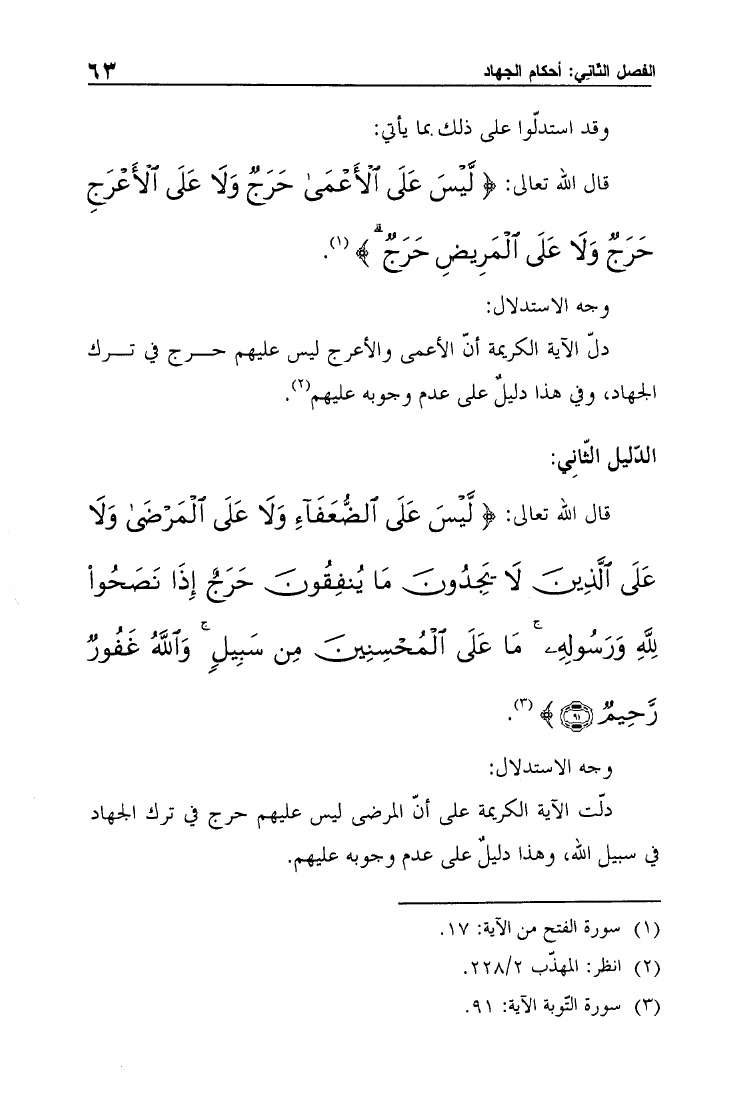 الفصل الثاني: أحكام الجهاد ٦٣
وقد استدلّوا على ذلك بما يأتي:
قال الله تعالى: ﴿ لَّيْسَ عَلَى ٱلْأَعْمَىٰ حَرَجٌ وَلَا عَلَى ٱلْأَعْرَجِ
حَرَجٌ وَلَا عَلَى ٱلْمَرِيضِ حَرَجٌ ۗ ﴾ (١).
وجه الاستدلال:
دلّ الآية الكريمة أنّ الأعمى والأعرج ليس عليهم حـــرج في تـــرك
الجهاد، وفي هذا دليلٌ على عدم وجوبه عليهم(٢).
الدّليل الثّاني:
قال الله تعالى: ﴿ لَّيْسَ عَلَى ٱلضُّعَفَآءِ وَلَا عَلَى ٱلْمَرْضَىٰ وَلَا
عَلَى ٱلَّذِينَ لَا يَجِدُونَ مَا يُنفِقُونَ حَرَجٌ إِذَا نَصَحُوا۟
لِلَّهِ وَرَسُولِهِۦ ۚ مَا عَلَى ٱلْمُحْسِنِينَ مِن سَبِيلٍ ۚ وَٱللَّهُ غَفُورٌ
رَّحِيمٌ ۝٩١ ﴾ (٣).
وجه الاستدلال:
دلّت الآية الكريمة على أنّ المرضى ليس عليهم حرج في ترك الجهاد
في سبيل الله، وهذا دليلٌ على عدم وجوبه عليهم.
(١) سورة الفتح من الآية: ١٧.
(٢) انظر: المهذّب ٢٢٨/٢.
(٣) سورة التّوبة الآية: ٩١.